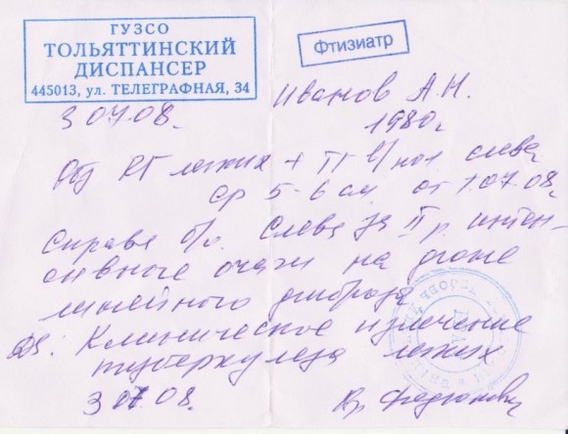 ГУЗСО
ТОЛЬЯТТИНСКИЙ
ДИСПАНСЕР
445013, ул. ТЕЛЕГРАФНАЯ, 34
Фтизиатр
Иванов А.Н.
3 07.08.
1980г
RГ легких + ТГ слева
ср 5-6 см от 1.07.08г
Справа б/о. Слева за II р. интен-
сивные очаги на фоне
линейного фиброза
Ds: Клиническое излечение
туберкулеза легких
3 07.08.
Вр